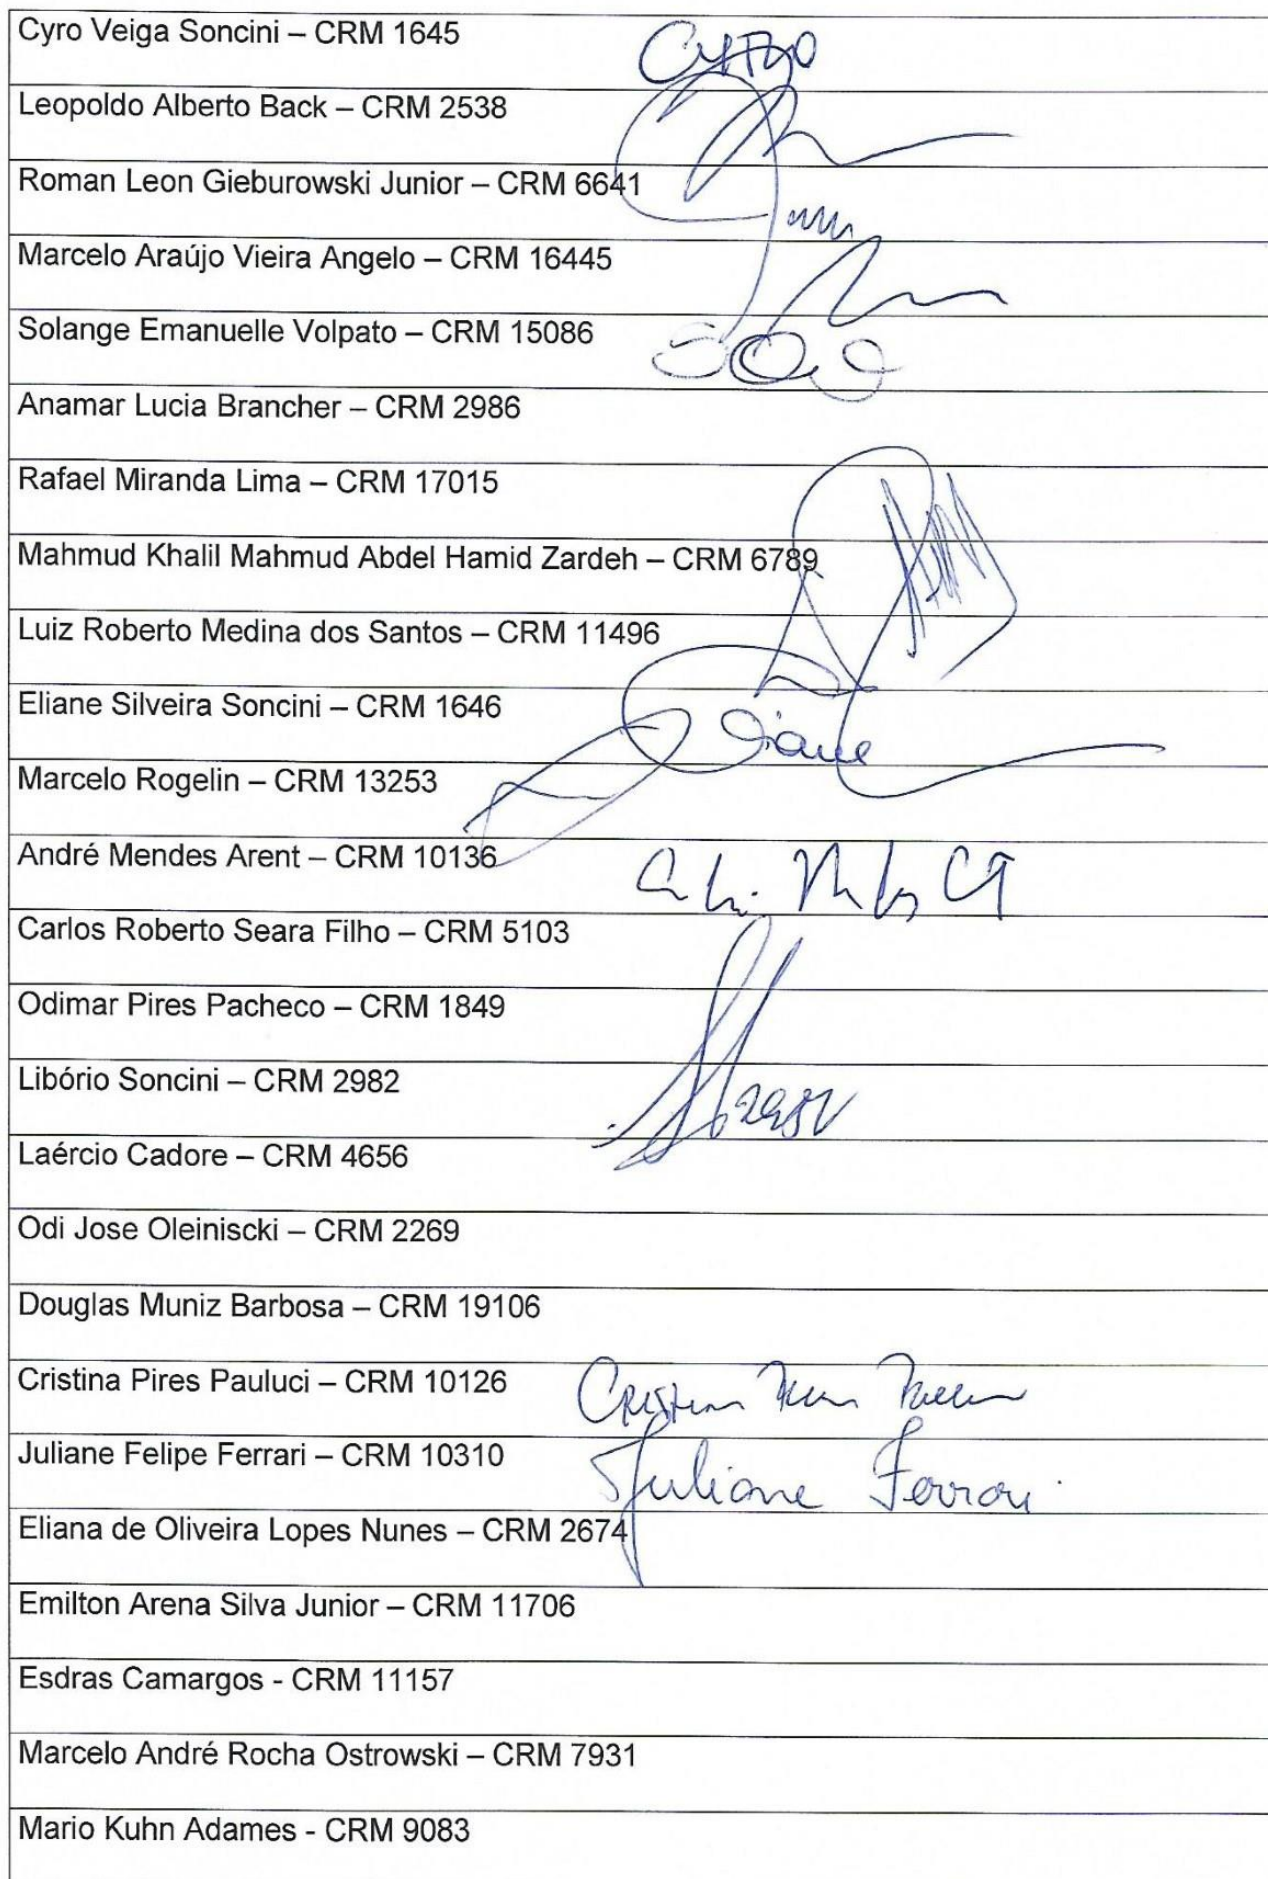 Cyro Veiga Soncini – CRM 1645
Cyro
Leopoldo Alberto Back – CRM 2538
Roman Leon Gieburowski Junior – CRM 6641
Marcelo Araújo Vieira Angelo – CRM 16445
Solange Emanuelle Volpato – CRM 15086
Anamar Lucia Brancher – CRM 2986
Rafael Miranda Lima – CRM 17015
Mahmud Khalil Mahmud Abdel Hamid Zardeh – CRM 6789
Luiz Roberto Medina dos Santos – CRM 11496
Eliane Silveira Soncini – CRM 1646
Eliane
Marcelo Rogelin – CRM 13253
André Mendes Arent – CRM 10136
Carlos Roberto Seara Filho – CRM 5103
Odimar Pires Pacheco – CRM 1849
Libório Soncini – CRM 2982
2982
Laércio Cadore – CRM 4656
Odi Jose Oleiniscki – CRM 2269
Douglas Muniz Barbosa – CRM 19106
Cristina Pires Pauluci – CRM 10126
Juliane Felipe Ferrari – CRM 10310
Juliane Ferrari
Eliana de Oliveira Lopes Nunes – CRM 2674
Emilton Arena Silva Junior – CRM 11706
Esdras Camargos - CRM 11157
Marcelo André Rocha Ostrowski – CRM 7931
Mario Kuhn Adames - CRM 9083